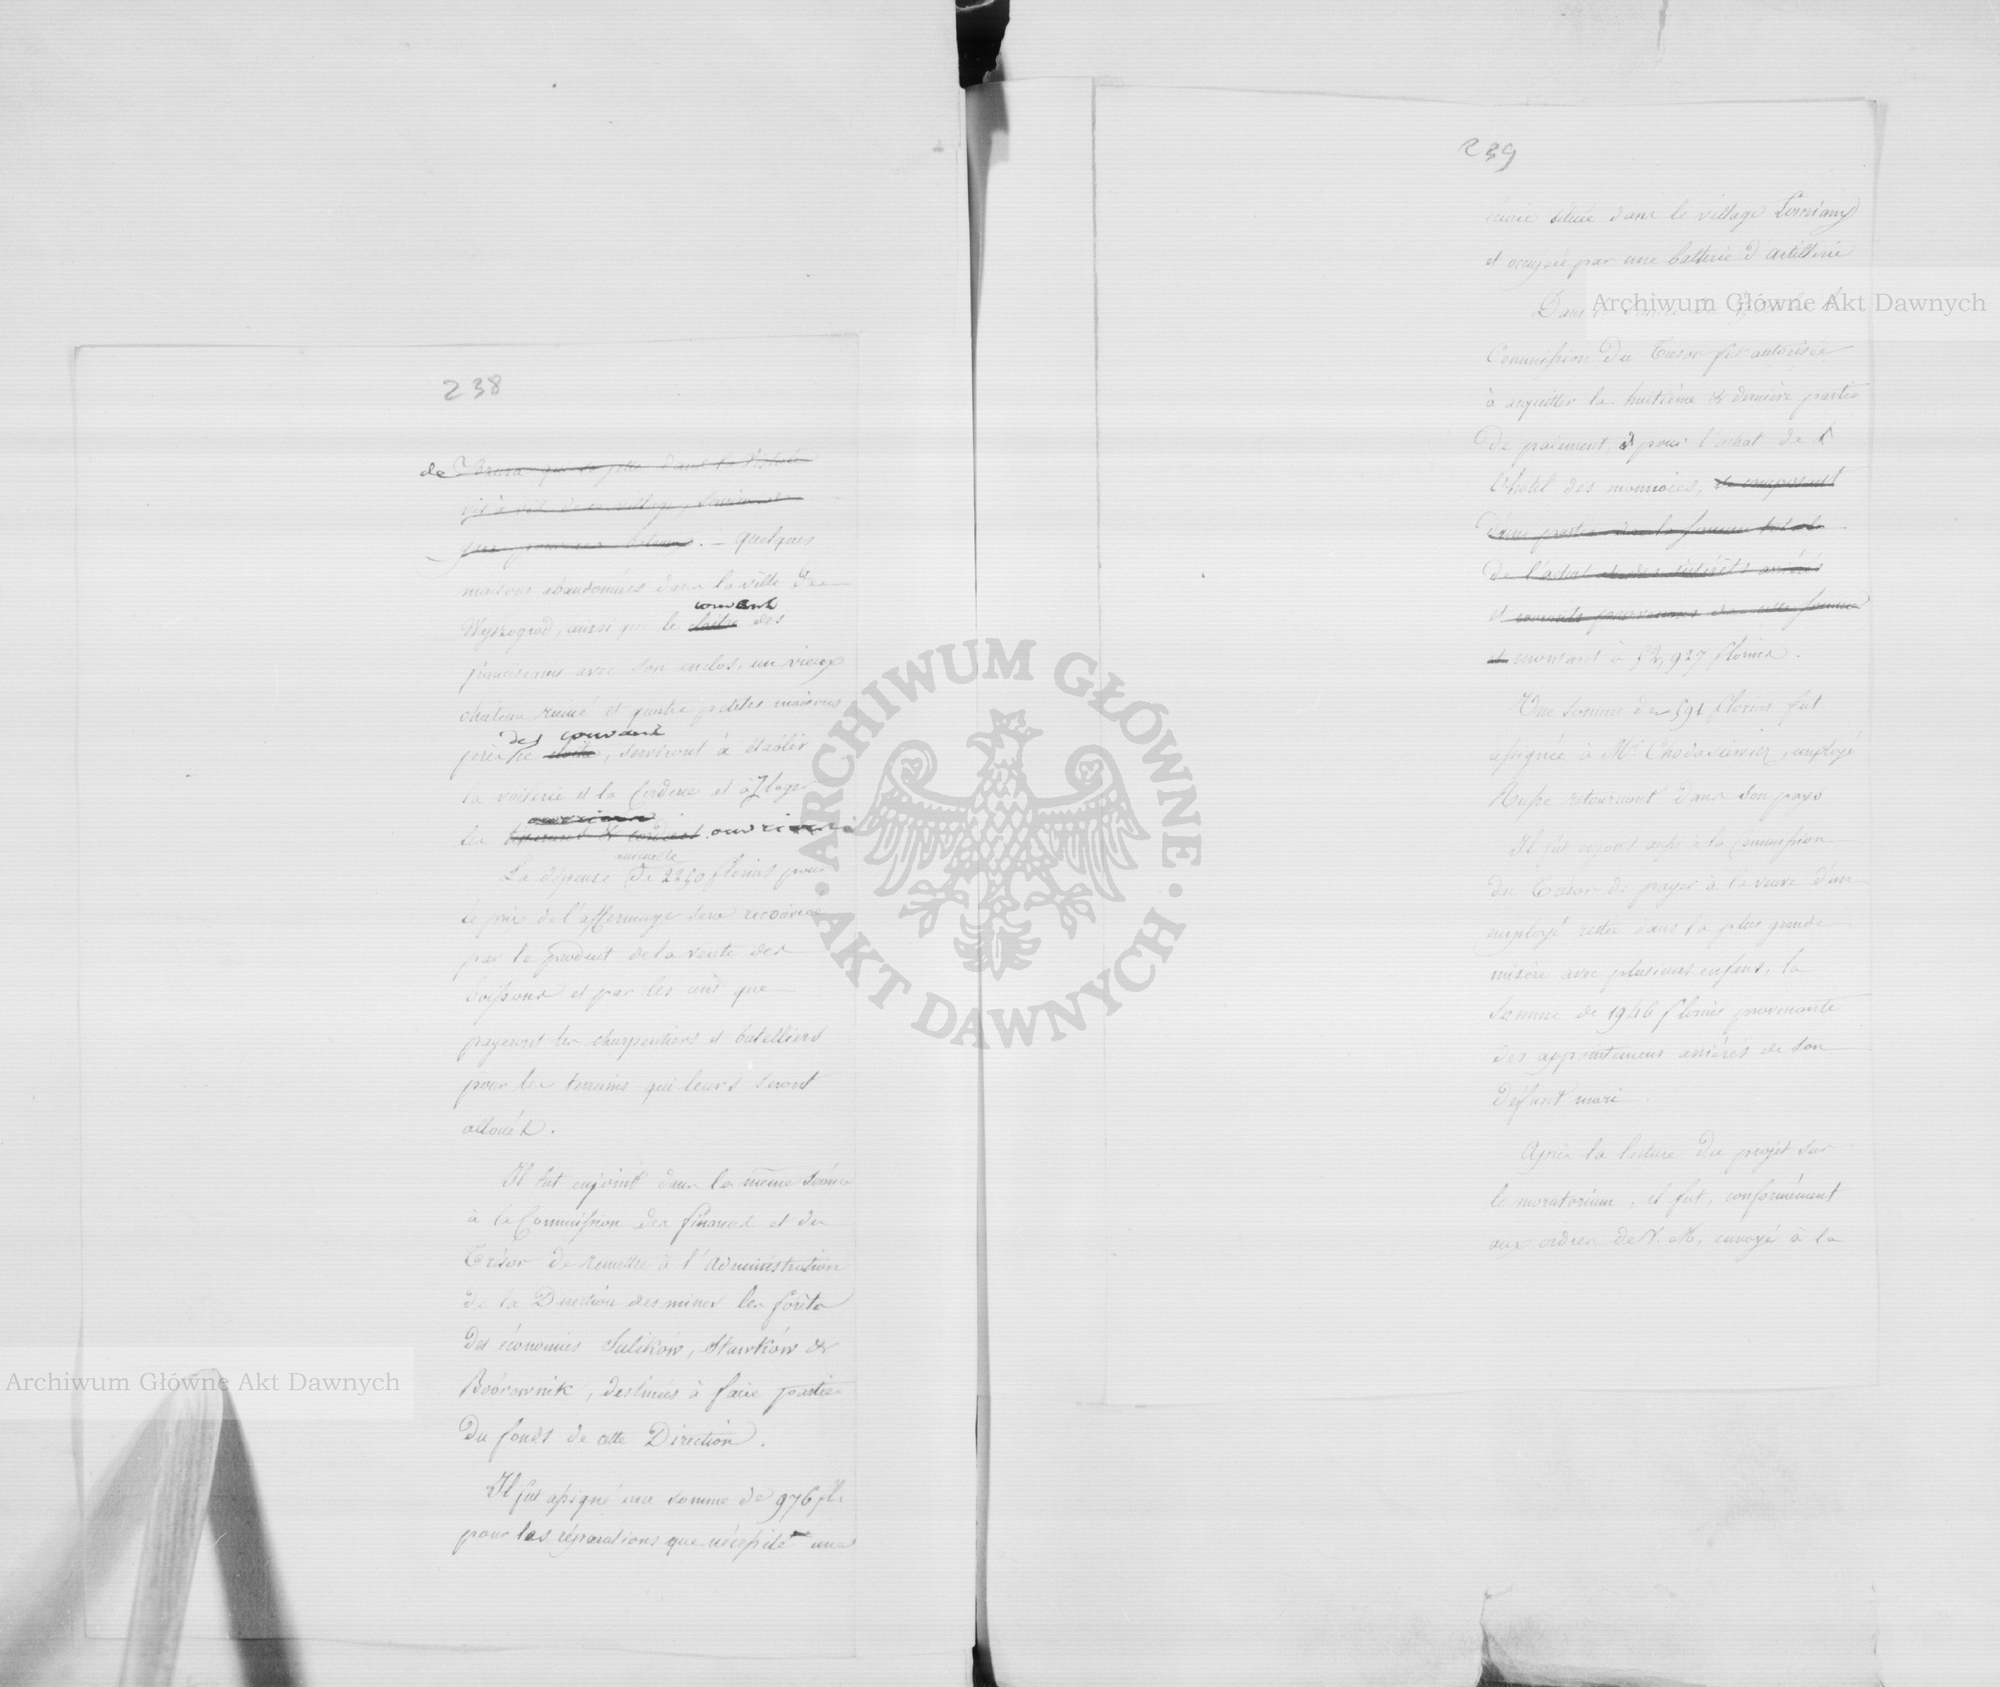 238
de Bzura qui se jette dans la Vistule
vis à vis de ce village,
. – Quelques
maisons abandonnées dans la ville de
couvent
Wyszogrod, ainsi que le cloitre des
franciscains avec son enclos, un vieux
château ruiné et quatre petites maisons
des couvent
près de cloitre, serviront à établir
la voilerie et la Corderie et à loger
ouvriers
les ouvriers
annuelle
La dépense de 2250 florins pour
le prix de l'affermage sera
par le produit de la vente des
boissons et par les cens que
payeront les charpentiers et batelliers
pour les terrains qui leurs seront
alloués.
Il fut enjoint dans la même séance
à la Commission des finances et du
Trésor de remettre à l'administration
de la Direction des mines les forêts
des économies Sulików, Sławków &
Bobrownik, destinées à faire partie
du fonds de cette Direction.
Il fut assigné une somme de 976 fl.
pour les réparations que nécessite une
239
écurie située dans le village
et occupée par une batterie d'artillerie
Dans la
Commission du Trésor fut autorisée
à acquitter la huitième & dernière partie
de paiement pour l'achat de
l'hotel des monnoies, et composant
d'une partie de la somme totale
de l'achat et des intérêts arriérés
et courants provenans de cette somme
et montant à 52,927 florins.
Une somme de 591 florins fut
assignée à Mr. Chodasiewicz, employé
Russe retournant dans son pays
Il fut enjoint aussi à la Commission
du Trésor de payer à la veuve d'un
employé restée dans la plus grande
misère avec plusieurs enfans, la
somme de 1946 florins provenante
des appointemens arriérés de son
défunt mari.
Après la lecture du projet sur
le moratorium, il fut, conformément
aux ordres de V. M. envoyé à la
Archiwum Główne Akt Dawnych
Archiwum Główne Akt Dawnych
ARCHIWUM GŁÓWNE
AKT DAWNYCH